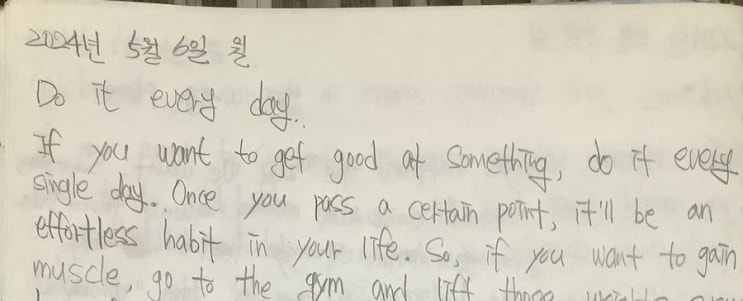 2024년 5월 6일 월
Do it every day..
If you want to get good at something, do it every
single day. Once you pass a certain point, it'll be an
effortless habit in your life. So, if you want to gain
muscle, go to the gym and lift those